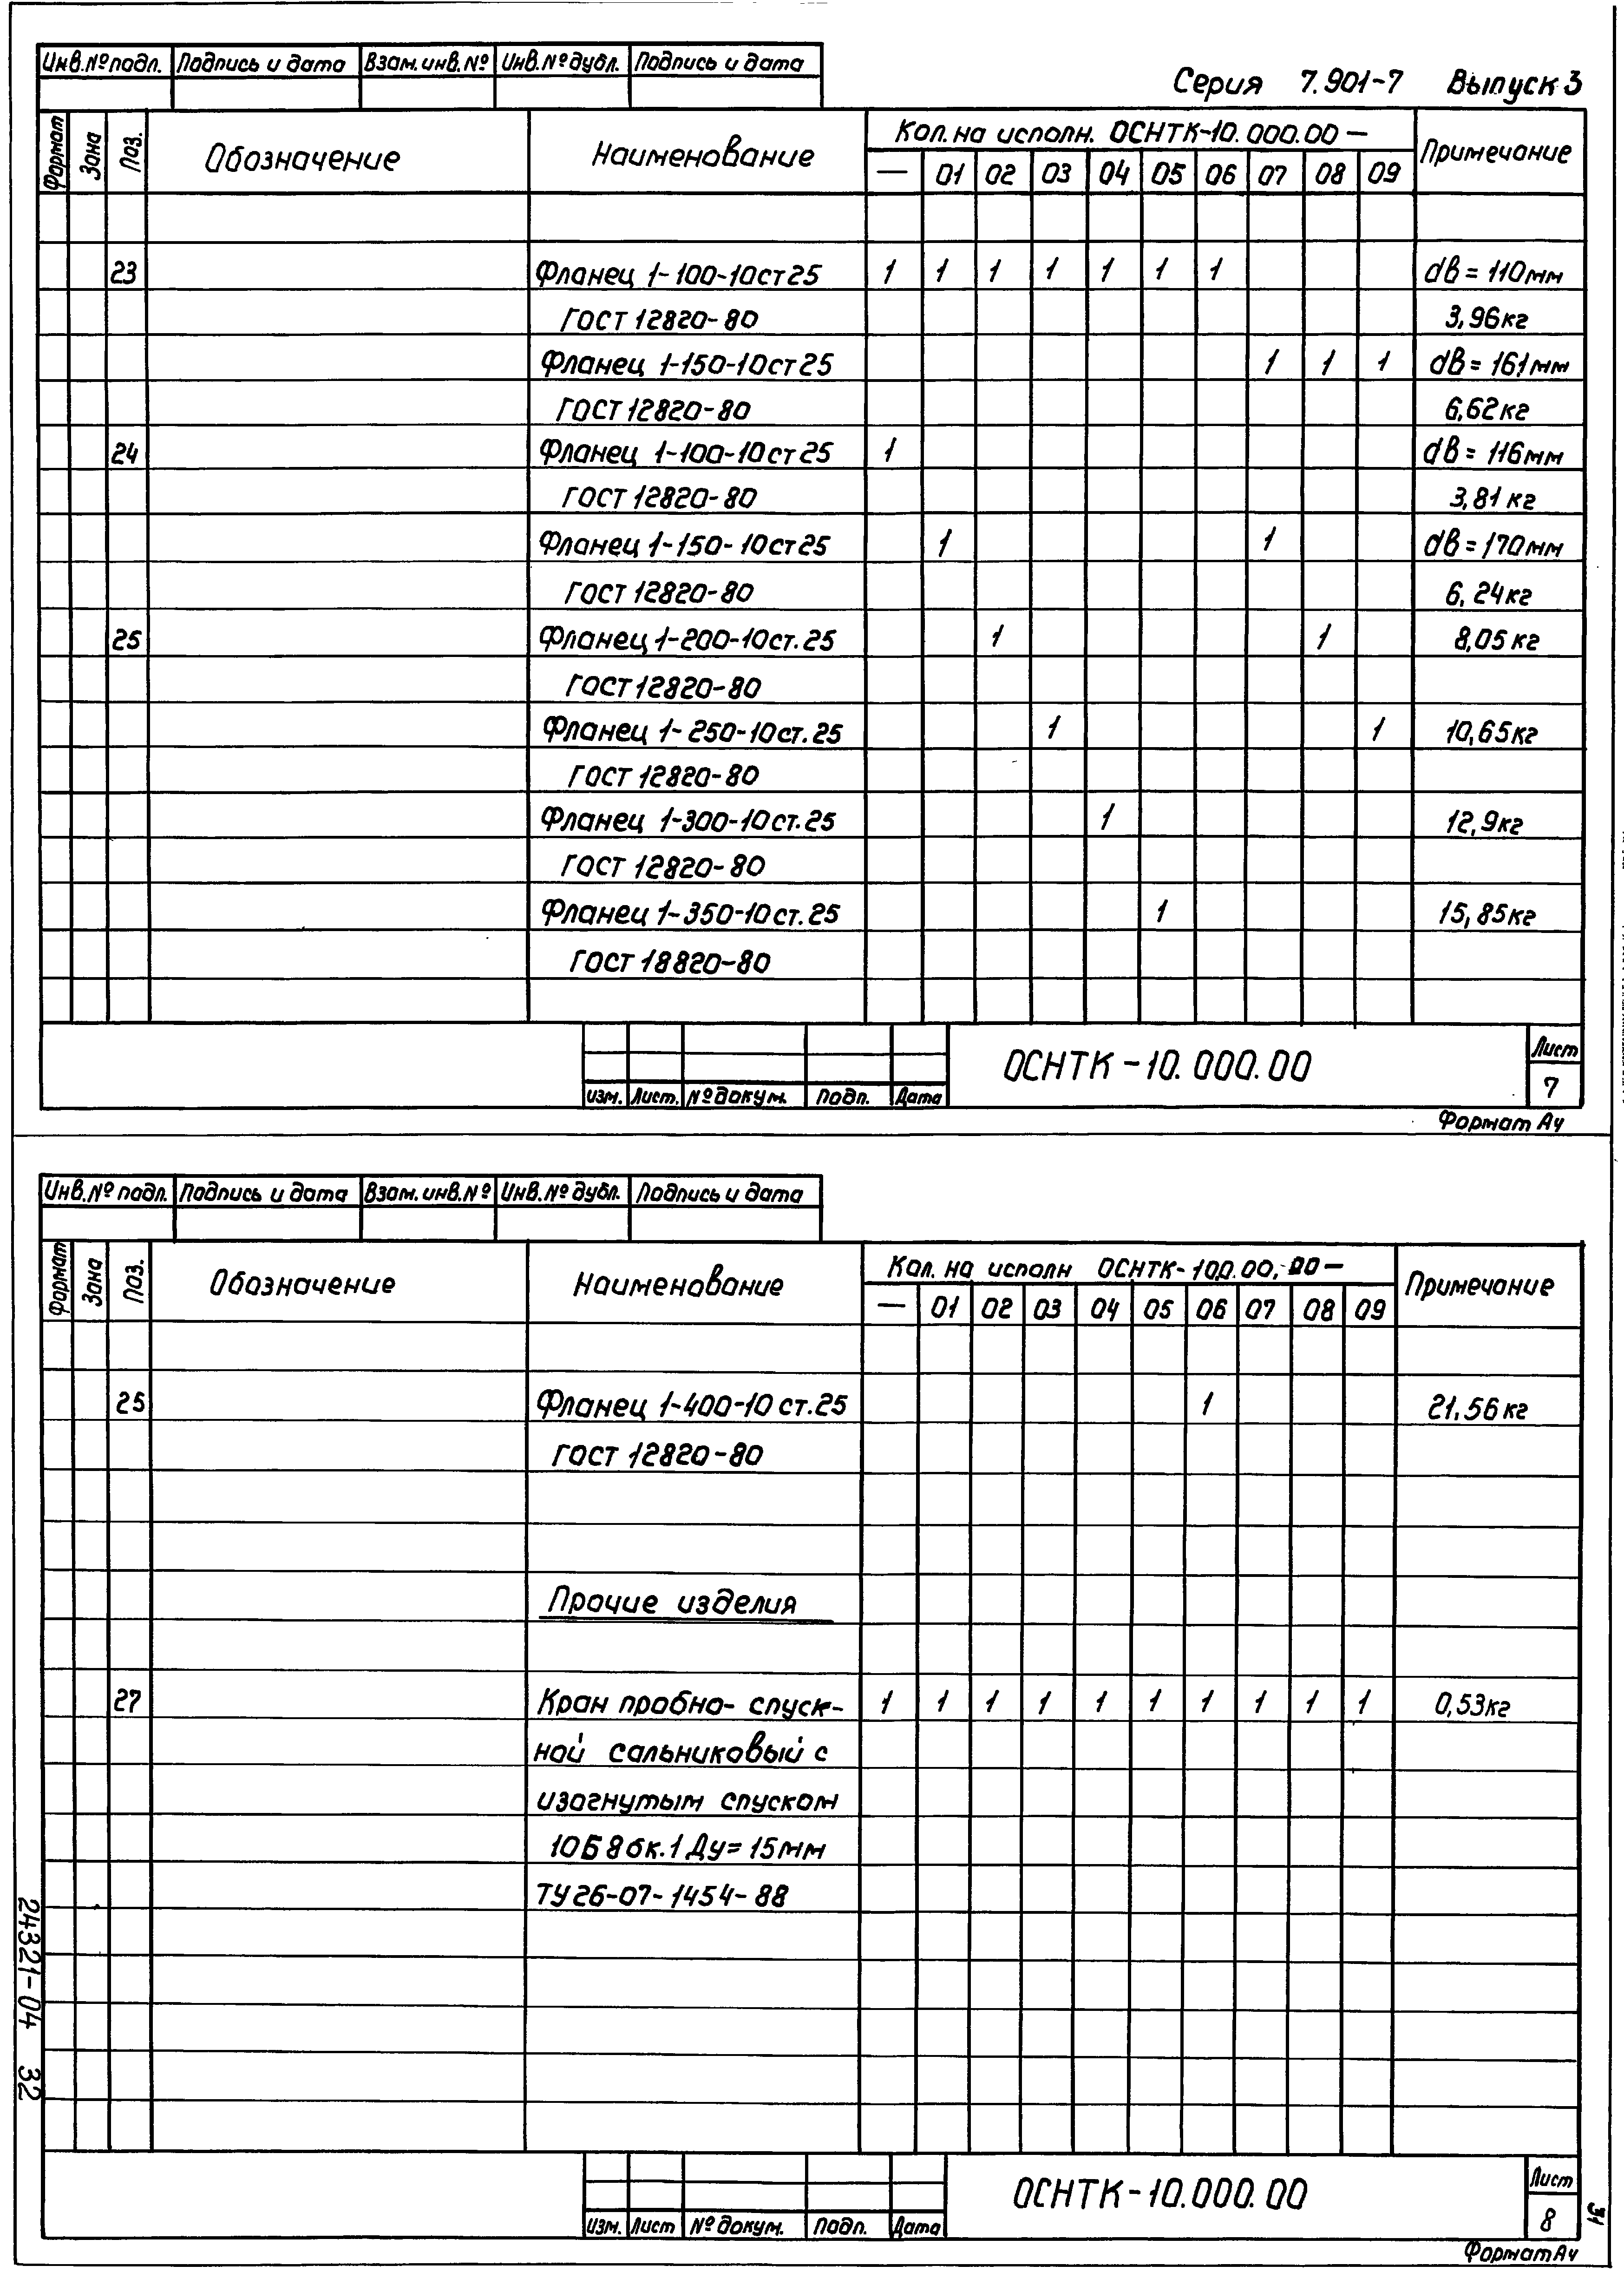 Инв.№подл. Подпись и дата Взам.инв.№ Инв.№дубл. Подпись и дата
Серия 7.901-7 Выпуск 3
Формат Зона Поз. Обозначение Наименование Кол.на исполн. ОСНТК-10.000.00 — Примечание
— 01 02 03 04 05 06 07 08 09
23 Фланец 1-100-10ст25 1 1 1 1 1 1 1 dв = 110мм
ГОСТ 12820-80 3,96кг
Фланец 1-150-10ст25 1 1 1 dв = 161мм
ГОСТ 12820-80 6,62кг
24 Фланец 1-100-10ст25 1 dв = 116мм
ГОСТ 12820-80 3,81кг
Фланец 1-150-10ст25 1 1 dв = 170мм
ГОСТ 12820-80 6,24кг
25 Фланец 1-200-10ст.25 1 1 8,05кг
ГОСТ 12820-80
Фланец 1-250-10ст.25 1 1 10,65кг
ГОСТ 12820-80
Фланец 1-300-10ст.25 1 12,9кг
ГОСТ 12820-80
Фланец 1-350-10ст.25 1 15,85кг
ГОСТ 18820-80
ОСНТК-10.000.00 Лист
7
Изм. Лист. №докум. Подп. Дата
Формат А4
Инв.№ подл. Подпись и дата Взам.инв.№ Инв.№ дубл. Подпись и дата
Формат Зона Поз. Обозначение Наименование Кол. на исполн ОСНТК-100.00.00— Примечание
— 01 02 03 04 05 06 07 08 09
25 Фланец 1-400-10 ст.25 1 21,56кг
ГОСТ 12820-80
Прочие изделия
27 Кран пробно-спуск- 1 1 1 1 1 1 1 1 1 1 0,53кг
ной сальниковый с
изогнутым спуском
10Б8бк.1 Ду=15мм
ТУ26-07-1454-88
ОСНТК-10.000.00 Лист
8
Изм. Лист № докум. Подп. Дата
Формат А4
24321-04 32